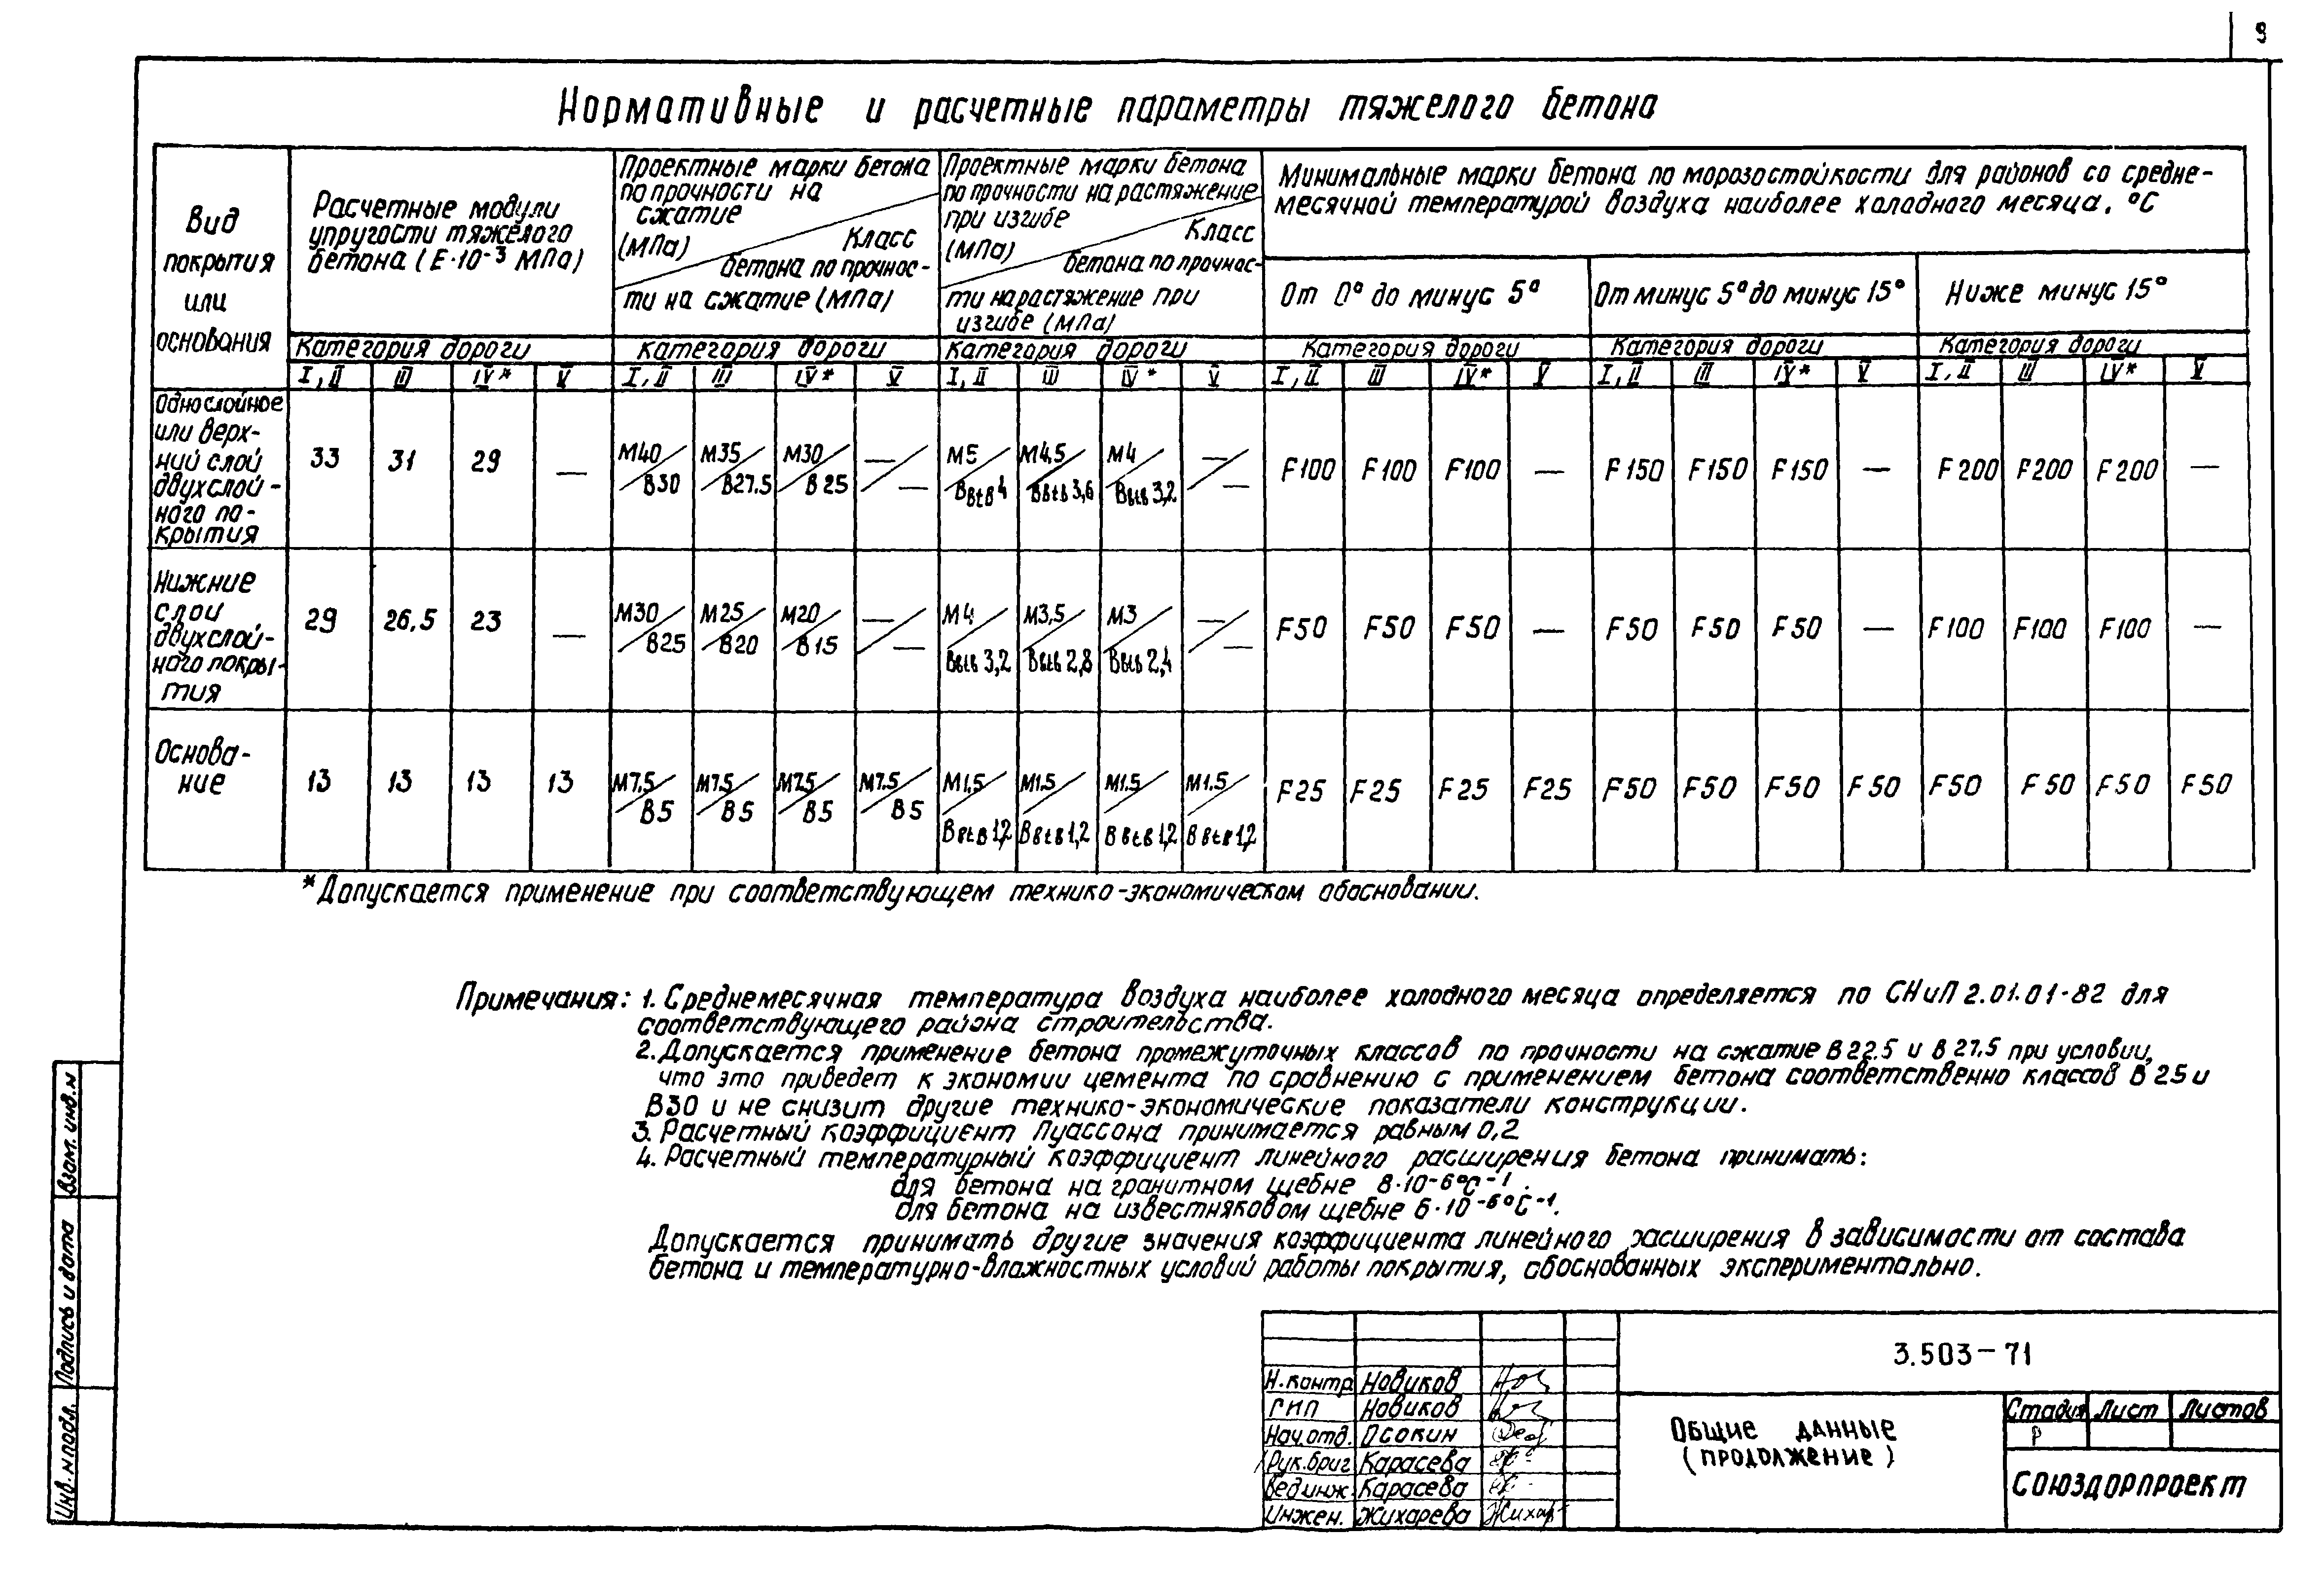 9
Нормативные и расчетные параметры тяжелого бетона
Вид
покрытия
или
основания
Расчетные модули
упругости тяжелого
бетона (Е·10⁻³ МПа)
Проектные марки бетона
по прочности на
сжатие
(МПа)
Класс
бетона по прочнос-
ти на сжатие (МПа)
Проектные марки бетона
по прочности на растяжение
при изгибе
(МПа)
Класс
бетона по прочнос-
ти на растяжение при
изгибе (МПа)
Минимальные марки бетона по морозостойкости для районов со средне-
месячной температурой воздуха наиболее холодного месяца, °С
От 0° до минус 5°
От минус 5° до минус 15°
Ниже минус 15°
Категория дороги Категория дороги Категория дороги Категория дороги Категория дороги Категория дороги
I, II III IV* V I, II III IV* V I, II III IV* V I, II III IV* V I, II III IV* V I, II III IV* V
Однослойное
или верх-
ний слой
двухслой-
ного по-
крытия
33 31 29 — М40/В30 М35/В27.5 М30/В25 —/— М5/Вbtb 4 М4,5/Вbtb 3,6 М4/Вbtb 3,2 —/— F100 F100 F100 — F150 F150 F150 — F200 F200 F200 —
Нижние
слои
двухслой-
ного покры-
тия
29 26.5 23 — М30/В25 М25/В20 М20/В15 —/— М4/Вbtb 3,2 М3,5/Вbtb 2,8 М3/Вbtb 2,4 —/— F50 F50 F50 — F50 F50 F50 — F100 F100 F100 —
Основа-
ние
13 13 13 13 М7.5/В5 М7.5/В5 М7.5/В5 М7.5/В5 М1,5/Вbtb 1,2 М1.5/Вbtb 1,2 М1.5/Вbtb 1,2 М1.5/Вbtb 1,2 F25 F25 F25 F25 F50 F50 F50 F50 F50 F50 F50 F50
*Допускается применение при соответствующем технико-экономическом обосновании.
Примечания: 1. Среднемесячная температура воздуха наиболее холодного месяца определяется по СНиП 2.01.01-82 для
соответствующего района строительства.
2. Допускается применение бетона промежуточных классов по прочности на сжатие В 22.5 и В 27.5 при условии,
что это приведет к экономии цемента по сравнению с применением бетона соответственно классов В 25 и
В30 и не снизит другие технико-экономические показатели конструкции.
3. Расчетный коэффициент Пуассона принимается равным 0,2
4. Расчетный температурный коэффициент линейного расширения бетона принимать:
для бетона на гранитном щебне 8·10⁻⁶°С⁻¹.
для бетона на известняковом щебне 6·10⁻⁶°С⁻¹.
Допускается принимать другие значения коэффициента линейного расширения в зависимости от состава
бетона и температурно-влажностных условий работы покрытия, обоснованных экспериментально.
Взам. инв. N
Подпись и дата
Инв. N подл.
Н. контр Новиков
ГИП Новиков
Нач. отд. Осокин
Рук. бриг Карасева
Вед инж. Карасева
Инжен. Жихарева
3.503-71
Общие данные
(продолжение)
Стадия Лист Листов
Р
Союздорпроект